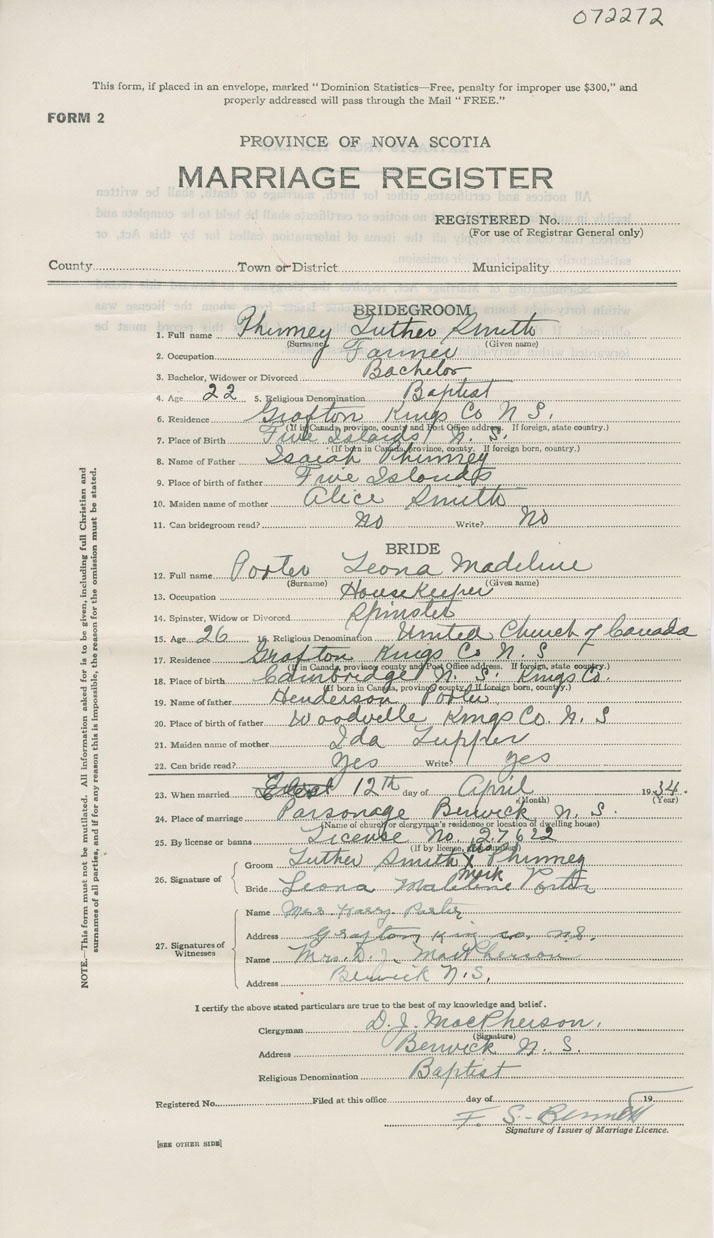 072272
This form, if placed in an envelope, marked "Dominion Statistics—Free, penalty for improper use $300," and
properly addressed will pass through the Mail "FREE."
FORM 2
PROVINCE OF NOVA SCOTIA
MARRIAGE REGISTER
REGISTERED No.
(For use of Registrar General only)
County Town or District Municipality
BRIDEGROOM
1. Full name Phinney Luther Smith
(Surname) (Given name)
2. Occupation Farmer
3. Bachelor, Widower or Divorced Bachelor
4. Age 22 5. Religious Denomination Baptist
6. Residence Grafton Kings Co N S.
(If in Canada, province, county and Post Office address. If foreign, state country.)
7. Place of Birth Five Islands N. S.
(If born in Canada, province, county. If foreign born, country.)
8. Name of Father Isaiah Phinney
9. Place of birth of father Five Islands
10. Maiden name of mother Alice Smith
11. Can bridegroom read? No Write? No
BRIDE
12. Full name Porter Leona Madeline
(Surname) (Given name)
13. Occupation HouseKeeper
14. Spinster, Widow or Divorced Spinster
15. Age 26 16. Religious Denomination United Church of Canada
17. Residence Grafton Kings Co N. S
(If in Canada, province, county and Post Office address. If foreign, state country.)
18. Place of birth Cambridge N. S. Kings Co.
(If born in Canada, province, county. If foreign born, country.)
19. Name of father Henderson Porter
20. Place of birth of father Woodville Kings Co. N. S
21. Maiden name of mother Ida Tupper
22. Can bride read? Yes Write? yes
23. When married 12th day of April 1934.
(Month) (Year)
24. Place of marriage Parsonage Berwick N. S.
(Name of church or clergyman's residence or location of dwelling house)
25. By license or banns License No. 27622
(If by license,
26. Signature of
Groom Luther Smith X Phinney
mark
Bride Leona Madeline Porter
27. Signatures of Witnesses
Name Mrs Harry Porter
Address Grafton Kings co. N.S.
Name Mrs. D. J. MacPherson
Address Berwick N.S.
I certify the above stated particulars are true to the best of my knowledge and belief.
Clergyman D. J. MacPherson.
(Signature)
Address Berwick N. S.
Religious Denomination Baptist
Registered No. Filed at this office day of 19
F. S. Bennett
Signature of Issuer of Marriage Licence.
[SEE OTHER SIDE]
NOTE.—This form must not be mutilated. All information asked for is to be given, including full Christian and
surnames of all parties, and if for any reason this is impossible, the reason for the omission must be stated.